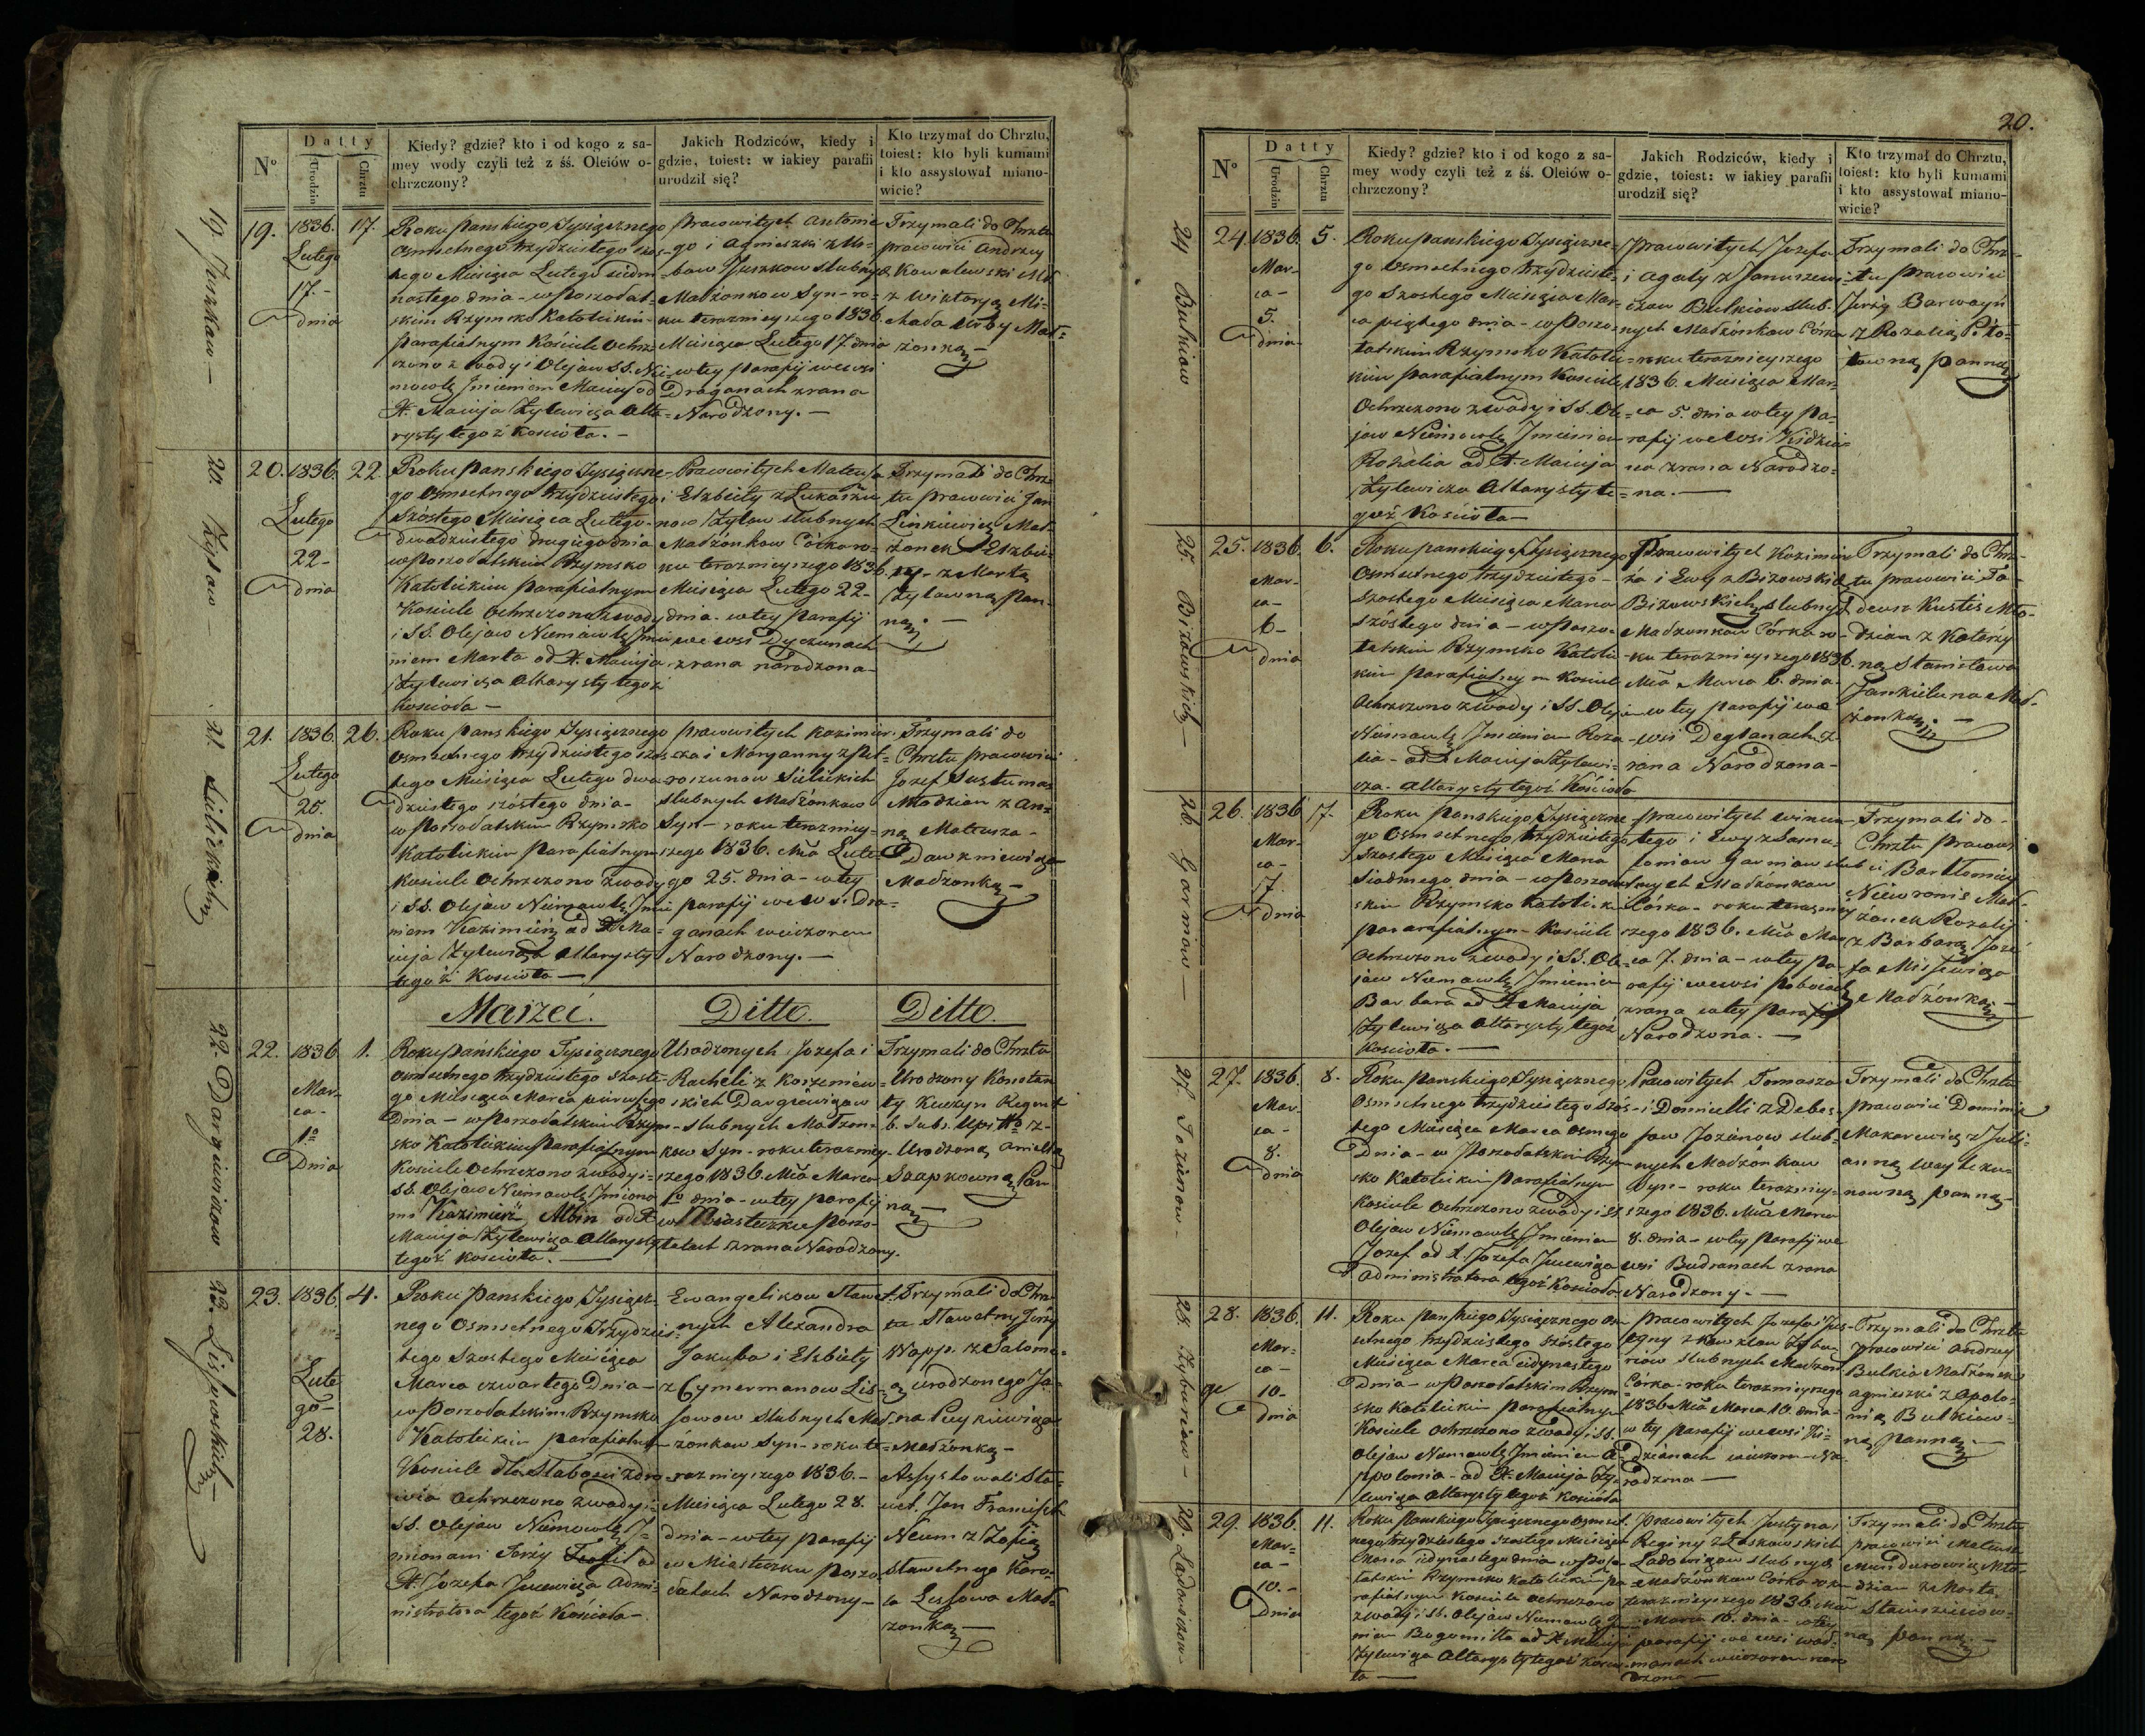 N°
Datty
Urodzin
Chrztu
Kiedy? gdzie? kto i od kogo z sa-
mey wody czyli też z śś. Oleiów o-
chrzczony?
Jakich Rodziców, kiedy i
gdzie, toiest: w iakiey parafii
urodził się?
Kto trzymał do Chrztu,
toiest: kto byli kumami
i kto assystował miano-
wicie?
19.
1836.
Lutego
17.-
dnia
17.
Roku Panskiego Tysiącznego
Osmsetnego trzydziestego szos-
tego Miesiąca Lutego siedm
nastego dnia - w Poszołat-
skim Rzymsko Katolickim
Parafialnym Kościele Ochrz
czono z wody i Olejow SS. Nie
mowlę Imieniem Maciej od
X. Macieja Żylewicza Alta-
rysty tegoż Kościoła. -
Pracowitych Antonie
go i Agnieszki z
Juszkow slubnych
Madżonkow Syn - ro-
ku terazniejszego 1836.
Miesiąca Lutego 17 dnia
w tey parafij we wsi
Draganach zrana
Narodzony. -
Trzymali do Chrztu
pracowici Andrzey
Kowalewski
z Wiktoryą Mi-
chała Mał-
żonką -
20.
1836.
Lutego
22-
dnia
22.
Roku Panskiego Tysiączne-
go Osmsetnego trzydziestego
Szóstego Miesiąca Lutego
dwudziestego drugiego dnia
w Poszołatskim Rzymsko
Katolickim Parafialnym
Kosciele Ochrzczono z wody
i SS. Olejow Niemowlę Imie
niem Marta od X. Macieja
Żylewicza Altarysty tegoż
Kościoła -
Pracowitych Mateusza
i Elzbiety z Łukaszu
now Żyłow slubnych
Madżonkow Córka ro-
ku terazniejszego 1836.
Miesiąca Lutego 22-
dnia - w tey Parafij
we wsi Dyczunach
zrana narodzona -
Trzymali do Chrz-
tu pracowici Jan
Linkiewicz Mał-
żonek Elzbie-
ty - z Martą
Żyłowną pan-
ną. -
21.
1836
Lutego
25.
dnia
26.
Roku Panskiego Tysiącznego
Osmsetnego trzydziestego szos
tego Miesiąca Lutego dwu
dziestego szóstego dnia -
w Poszołatskim Rzymsko
Katolickim Parafialnym
Kosciele Ochrzczono z wody
i SS. Olejow Niemowlę Imie
niem Kazimierz od X. Ma-
cieja Żylewicza Altarysty
tegoż Kościoła -
pracowitych Kazimier-
za i Maryanny z Piet-
roszunow Sielickich
slubnych Madżonkow
Syn - roku terazniey-
szego 1836. Mca Lute-
go 25. dnia - w tey
parafij we wsi Dra-
ganach wieczorem
Narodzony. -
Trzymali do
Chrztu pracowici
Jozef
Młodzian z An-
ną Mateusza -
Dawkniewicza
Madżonką -
Marzec.
Ditto.
Ditto.
22.
1836
Mar-
ca -
1.º
Dnia
1.
Roku Pańskiego Tysiącznego
Osmsetnego trzydziestego szoste-
go Miesiąca Marca pierwszego
Dnia - w Poszołatskim Rzym-
sko Katolickim Parafialnym
Kosciele Ochrzczono z wody i
SS. Olejow Niemowlę Imiona
mi Kazimierz Albin od X.
Macieja Żylewicza Altarysty
tegoż Kościoła. -
Urodzonych Jozefa i
Racheli z Korzeniew-
skich Dargiewiczow
slubnych Małżon-
kow Syn - roku terazniey-
szego 1836. Mca Marca
1º dnia - w tey parafij
w Miasteczku Poszo-
łatach zrana Narodzony.
Trzymali do Chrztu
Urodzony Konstan
ty Kuczyn Regent
z
Urodzoną Anielą
Szapkowną Pan
ną -
23.
1836
Lute
go -
28.
4.
Roku Panskiego Tysiącz-
nego Osmsetnego Trzydzies-
tego Szostego Miesiąca
Marca czwartego Dnia -
w Poszołatskim Rzymsko
Katolickim parafialnym
Kosciele dla Słabości zdro
wia Ochrzczono z wody i
SS. Olejow Niemowlę I-
mionami Jerzy Teofil od
X. Jozefa Jucewicza Admi-
nistratora tegoż Kościoła -
Ewangelikow Sławet-
nych Alexandra
Jakuba i Elzbiety
z Cymermanow Lis-
sowow slubnych Mał-
żonkow Syn - roku te-
razniejszego 1836. -
Miesiąca Lutego 28.
dnia - w tey parafij
w Miasteczku Poszo-
łatach Narodzony -
Trzymali do Chrz-
tu Sławetny Jerzy
Wapp. z Salome-
ą urodzonego Ja-
na Pucykiewicza
Madżonką -
Assystowali Sła-
wet. Jan Franciszek
Neum z Zofią
Sławetnego Karo-
la Lissowa Mał-
żonką -
19. Juszkow -
20. Żyłow -
21. Sielickich
22. Dargiewiczow
23. Lissowskich -
20.
N°
Datty
Urodzin
Chrztu
Kiedy? gdzie? kto i od kogo z sa-
mey wody czyli też z śś. Oleiów o-
chrzczony?
Jakich Rodziców, kiedy i
gdzie, toiest: w iakiey parafii
urodził się?
Kto trzymał do Chrztu,
toiest: kto byli kumami
i kto assystował miano-
wicie?
24.
1836
Mar-
ca -
5.
dnia
5.
Roku Panskiego Tysiączne-
go Osmsetnego trzydzieste-
go Szostego Miesiąca Mar-
ca piątego dnia - w Poszo-
łatskim Rzymsko Katolic-
kim parafialnym Kosciele
Ochrzczono z wody i SS. Ole-
jow Niemowlę Imieniem
Rozalia od X. Macieja
Żylewicza Altarysty te-
goż Kościoła -
Pracowitych Jozefa
i Agaty z Januszewi-
czow Butkiow slub-
nych Madżonkow Córka
roku terazniejszego
1836. Miesiąca Mar-
ca 5. dnia w tey Pa-
rafij we wsi Kidzia-
na zrana Narodzo-
na. -
Trzymali do Chrz-
tu pracowici
Jerzy
z Rozalią
panną
25.
1836.
Mar-
ca -
6-
dnia
6.
Roku panskiego Tysiącznego
Osmsetnego trzydziestego -
Szostego Miesiąca Marca
szóstego dnia - w Poszo-
łatskim Rzymsko Katolic
kim parafialnym Kosciele
Ochrzczono z wody i SS. Olejow
Niemowlę Imieniem Roza-
lia - od X. Macieja Żylewi-
cza - Altarysty tegoż Kościoła
Pracowitych Kazimier
za i Ewy z Bizowskich
Bizowskich slubnych
Madżonkow Córka ro-
ku terazniejszego 1836.
Mca Marca 6. dnia
w tey parafij we
wsi Degłanach z-
rana Narodzona -
Trzymali do Chrz-
tu pracowici Ta-
deusz Kustis Mło-
dzian z Katarzy
ną Stanisława
Jankieluna Mał-
żonką. -
26.
1836
Mar-
ca -
7
dnia
7.
Roku Panskiego Tysiączne
go Osmsetnego trzydziestego
Szostego Miesiąca Marca
siodmego dnia - w Poszołat
skim Rzymsko Katolickim
pararafialnym Kosciele
Ochrzczono z wody i SS. Ole-
jow Niemowlę Imieniem
Barbara od X. Macieja
Żylewicza Altarysty tegoż
Kościoła. -
pracowitych Wincen-
tego i Ewy z
Garniow slub
nych Madżonkow
Córka - roku terazniey
szego 1836. Mca Mar
ca 7. dnia - w tey pa-
rafij we wsi
zrana w tey parafij
Narodzona. -
Trzymali do -
Chrztu Pracow
ici Bartłomiey
Mał-
żonek Rozalij
z Barbarą Joze-
fa Misiewicza
Madżonką -
27.
1836.
Mar-
ca -
8.
dnia
8.
Roku Panskiego Tysiącznego
Osmsetnego trzydziestego szós-
tego Miesiąca Marca osmego
Dnia - w Poszołatskim Rzym-
sko Katolickim parafialnym
Kosciele Ochrzczono z wody i SS
Olejow Niemowlę Imieniem
Jozef od X. Jozefa Jucewicza
Administratora tegoż Kościoła
Pracowitych Tomasza
i Domicelli z Debes-
sow Jozunow slub-
nych Madżonkow
Syn - roku terazniey-
szego 1836. Mca Marca
8. dnia - w tey Parafij we
wsi Budranach zrana
Narodzony. -
Trzymali do Chrztu
pracowici Dominik
Makarewicz z Juli-
anną Woytku-
nowną panną -
28.
1836.
Mar-
ca -
10-
dnia
11.
Roku Panskiego Tysiącznego Osm
setnego trzydziestego szóstego
Miesiąca Marca iedynastego
dnia - w Poszołatskim Rzym
sko Katolickim Parafialnym
Kosciele Ochrzczono z wody i SS.
Olejow Niemowlę Imieniem A-
ppolonia - od X. Macieja Ży-
lewicza Altarysty tegoż Kościoła
Pracowitych Jozefa i Jus-
tyny z
slubnych Madżon
Córka - roku terazniejszego
1836 Mca Marca 10. dnia -
w tey parafij we wsi Ki-
dzianach wieczorem Na-
rodzona -
Trzymali do Chrztu
pracowici Andrzey
Butkia Madżonek
Agnieszki z Apolo-
nią Butkiow-
ną panną. -
29.
1836.
Mar-
ca -
10. -
Dnia
11.
Roku Panskiego Tysiącznego Osmset-
nego trzydziestego Szostego Miesiąca
Marca iedynastego dnia w Poszo-
łatskim Rzymsko Katolickim pa-
rafialnym Kosciele Ochrzczono
z wody i SS. Olejow Niemowlę Imie-
niem Bogumiła od X. Macieja
Żylewicza Altarysty tegoż Koscio-
ła -
Pracowitych Justyna i
Reginy z Laskowskich
Ladowiczow slubnych
Madżonkow Córka roku
terazniejszego 1836. Mca
Marca 10. dnia - w tey
parafij we wsi
wieczorem naro
dzona -
Trzymali do Chrztu
pracowici Mateusz
Mło-
dzian z Martą
ną panną -
24 Butkiow
25. Bizowskich -
26. Garniow -
27. Jozunow -
28.
29. Ladowiczow